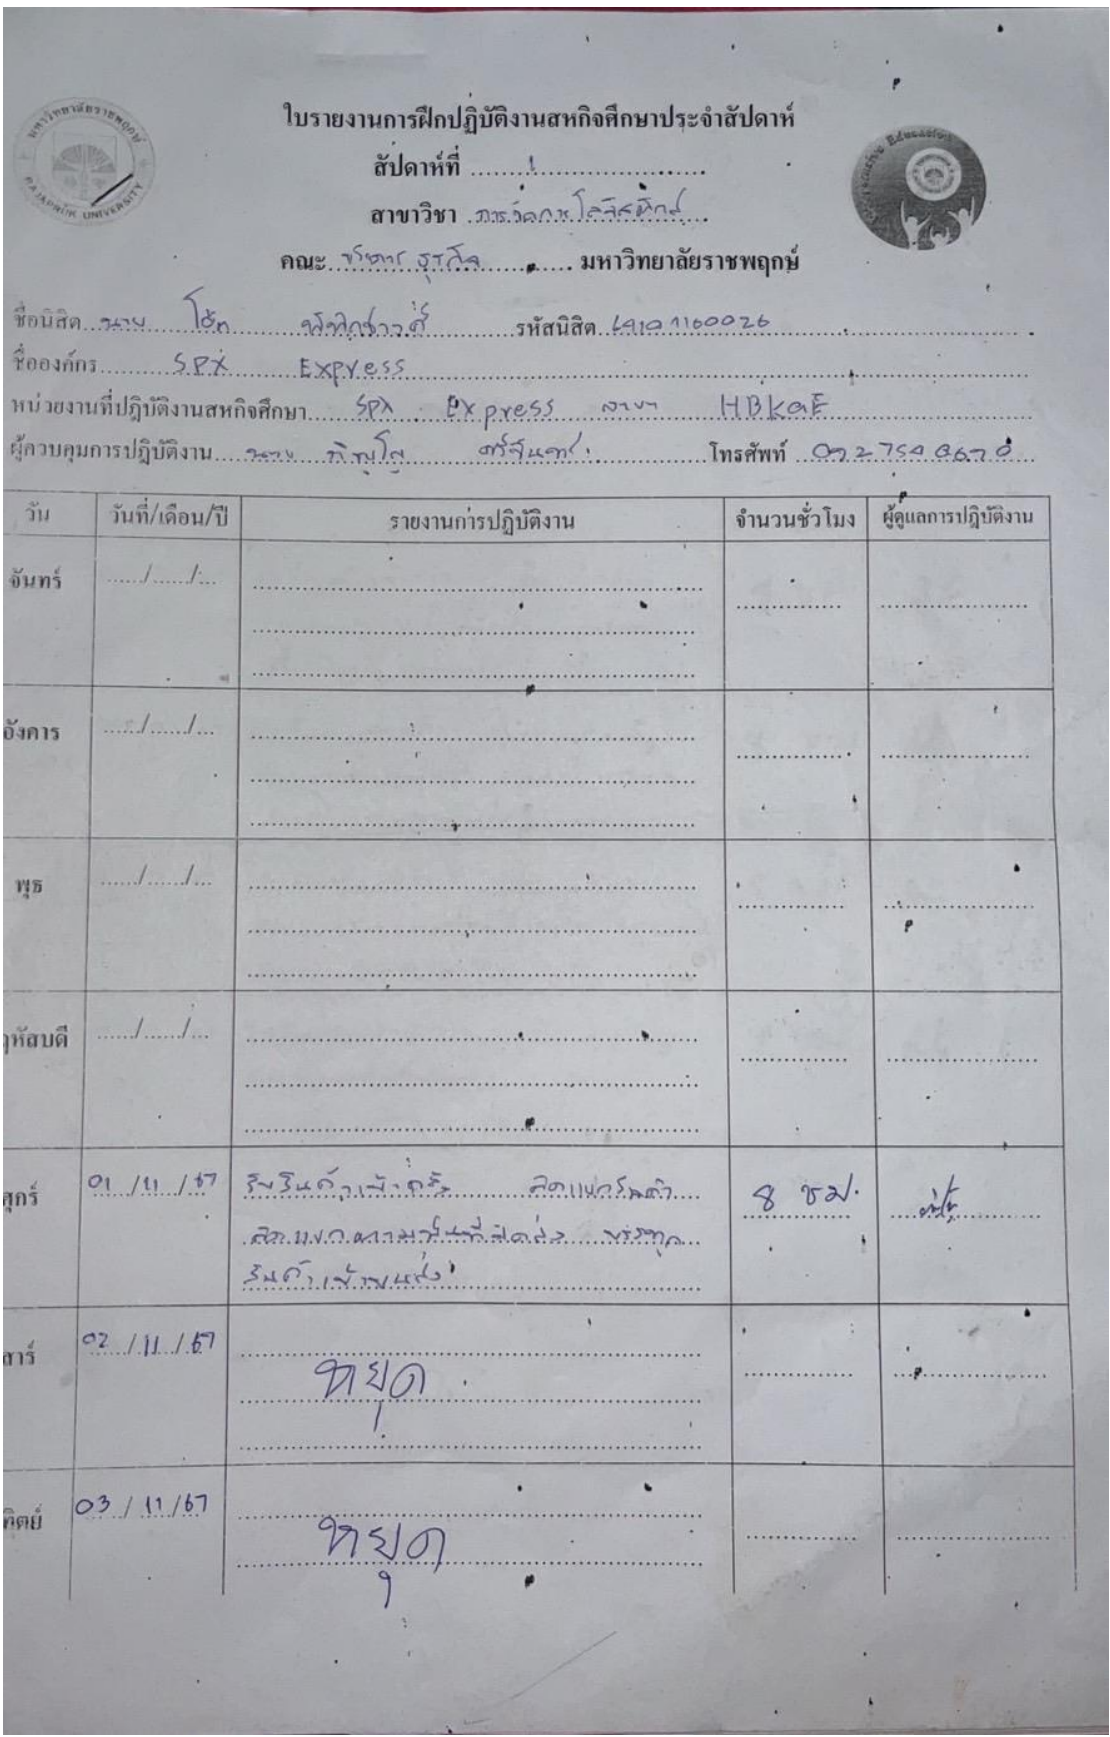 มหาวิทยาลัยราชพฤกษ์
RAJAPRUK UNIVERSITY
Education
ใบรายงานการฝึกปฏิบัติงานสหกิจศึกษาประจำสัปดาห์
สัปดาห์ที่ ......1......
สาขาวิชา การจัดการโลจิสติกส์
คณะ บริหารธุรกิจ มหาวิทยาลัยราชพฤกษ์
ชื่อนิสิต นาย รหัสนิสิต
ชื่อองค์กร SPX Express
หน่วยงานที่ปฏิบัติงานสหกิจศึกษา SPX Express สาขา
ผู้ควบคุมการปฏิบัติงาน โทรศัพท์
วัน วันที่/เดือน/ปี รายงานการปฏิบัติงาน จำนวนชั่วโมง ผู้ดูแลการปฏิบัติงาน
จันทร์ ....../....../...
อังคาร ....../....../...
พุธ ....../....../...
หัสบดี ....../....../...
ศุกร์ 01 /11 /67 รับสินค้าเข้าคลัง สแกนสินค้า 8 ชม.
บรรทุก
สินค้าเข้าขนส่ง
สาร์ 02 /11 /67
หยุด
ทิตย์ 03 /11 /67
หยุด